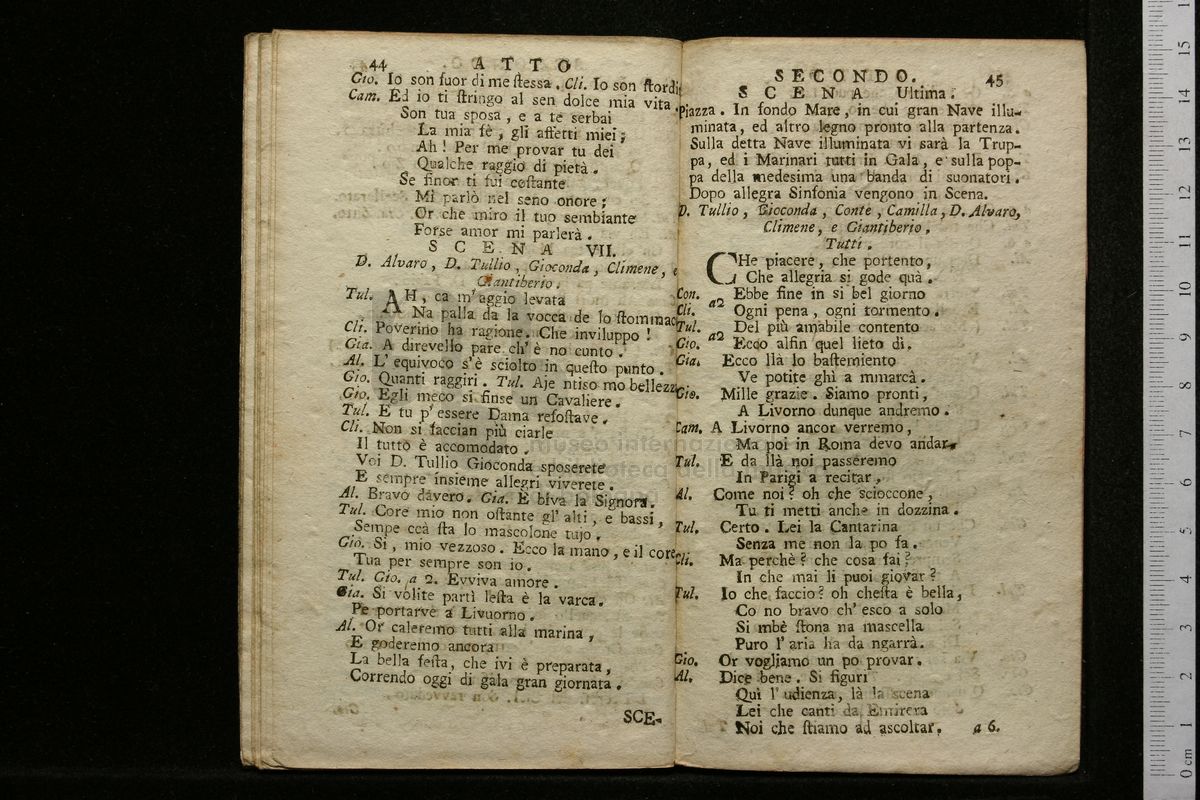 44 ATTO
Gio. Io son fuor di me ſteſſa. Cli. Io son ſtordi
Cam. Ed io ti ſtringo al sen dolce mia vita.
Son tua sposa, e a te serbai
La mia fè, gli affetti miei;
Ah! Per me provar tu dei
Qualche raggio di pietà.
Se finor ti fui coſtante
Mi parlò nel seno onore;
Or che miro il tuo sembiante
Forse amor mi parlerà.
SCENA VII.
D. Alvaro, D. Tullio, Gioconda, Climene, e
Giantiberio.
Tul. AH, ca m'aggio levata
Na palla da la vocca de lo ſtommac
Cli. Poverino ha ragione. Che inviluppo!
Gia. A direvello pare ch'è no cunto.
Al. L'equivoco s'è sciolto in queſto punto.
Gio. Quanti raggiri. Tul. Aje ntiso mo bellezz
Gio. Egli meco si finse un Cavaliere.
Tul. E tu p'essere Dama refoſtave.
Cli. Non si faccian più ciarle
Il tutto è accomodato.
Voi D. Tullio Gioconda sposerete
E sempre insieme allegri viverete.
Al. Bravo davero. Gia. E biva la Signora.
Tul. Core mio non oſtante gl'alti, e bassi,
Sempe ccà ſta lo mascolone tujo.
Gio. Si, mio vezzoso. Ecco la mano, e il core
Tua per sempre son io.
Tul. Gio. a 2. Evviva amore.
Gia. Si volite partì leſta è la varca.
Pe portarve a Livuorno.
Al. Or caleremo tutti alla marina,
E goderemo ancora
La bella feſta, che ivi è preparata,
Correndo oggi di gala gran giornata.
SCE-
SECONDO. 45
SCENA Ultima.
Piazza. In fondo Mare, in cui gran Nave illu-
minata, ed altro legno pronto alla partenza.
Sulla detta Nave illuminata vi sarà la Trup-
pa, ed i Marinari tutti in Gala, e sulla pop-
pa della medesima una banda di suonatori.
Dopo allegra Sinfonia vengono in Scena.
D. Tullio, Gioconda, Conte, Camilla, D. Alvaro,
Climene, e Giantiberio.
Tutti.
CHe piacere, che portento,
Che allegria si gode quà.
Con. a2 Ebbe fine in si bel giorno
Cli. Ogni pena, ogni tormento.
Tul. a2 Del più amabile contento
Gio. Ecco alfin quel lieto dì.
Gia. Ecco llà lo baſtemiento
Ve potite ghì a mmarcà.
Gio. Mille grazie. Siamo pronti,
A Livorno dunque andremo.
Cam. A Livorno ancor verremo,
Ma poi in Roma devo andar.
Tul. E da llà noi passeremo
In Parigi a recitar.
Al. Come noi? oh che scioccone,
Tu ti metti anche in dozzina.
Tul. Certo. Lei la Cantarina
Senza me non la po fa.
Cli. Ma perchè? che cosa fai?
In che mai li puoi giovar?
Tul. Io che faccio? oh cheſta è bella,
Co no bravo ch'esco a solo
Si mbè ſtona na mascella
Puro l'aria ha da ngarrà.
Gio. Or vogliamo un po provar.
Al. Dice bene. Si figuri
Quì l'udienza, là la scena
Lei che canti da Emirera
Noi che ſtiamo ad ascoltar. a 6.